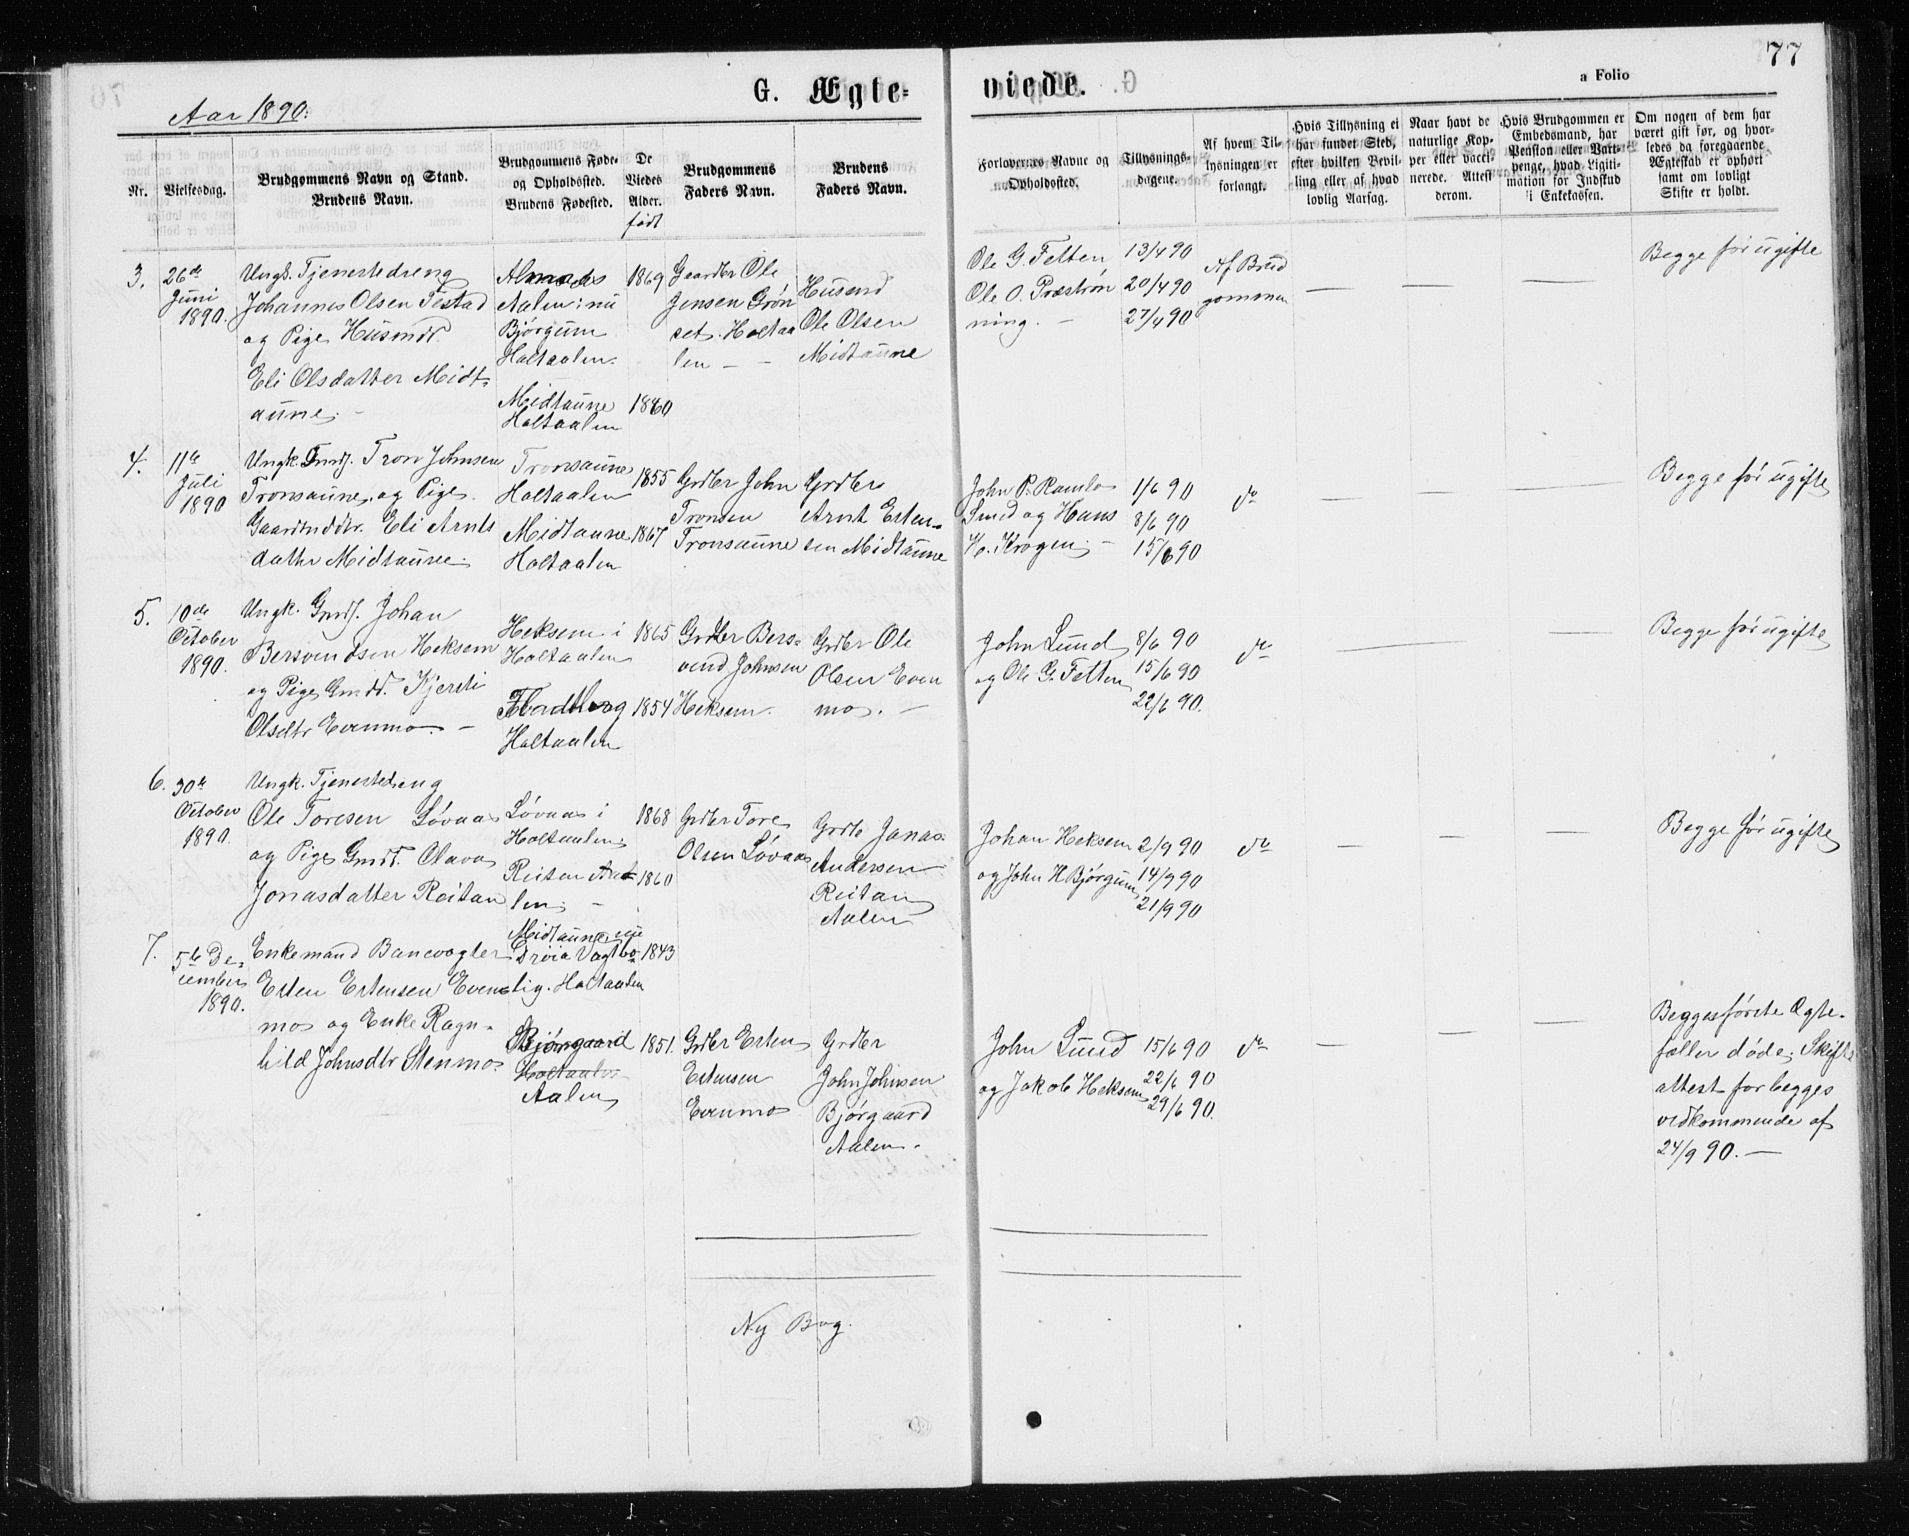 77
G. Ægte=
viede.
a Folio
Aar 1890.
Nr.
Vielsesdag.
Brudgommens Navn og Stand.
Brudens Navn.
Brudgommens Føde-
og Opholdssted.
Brudens Fødested.
De
Viedes
Alder.
født
Brudgommens
Faders Navn.
Brudens
Faders Navn.
Forlovernes Navne og
Opholdssted.
Tillysnings-
dagene.
Af hvem Til-
lysningen er
forlangt.
Hvis Tillysning ei
har fundet Sted,
efter hvilken Bevil-
ling eller af hvad
lovlig Aarsag.
Naar havt de
naturlige Kop-
per eller vacci-
nerede. Attest
derom.
Hvis Brudgommen er
Embedsmand, har
Pension eller Vart-
penge, hvad Ligiti-
mation for Indskud
i Enkekassen.
Om nogen af dem har
været gift før, og hvor-
ledes da foregaaende
Ægteskab er ophørt
samt om lovligt
Skifte er holdt.
3.
26de
Juni
1890.
Ungk. Tjenestedreng
Johannes Olsen
og Pige Husmdt.
Eli Olsdatter Midt-
aune. -
Aalen: nu
Bjørgum
Holtaalen.
Midtaune
Holtaalen
1869
1860
Gaardbr Ole
Jensen Grøn
set. Holtaa
len -
Husmd
Ole Olsen
Midtaune
Ole G. Fetten
Ole O. Præstrøn
ning. -
13/4 90
20/4 90
27/4 90
Af Brud
gommen
Begge før ugifte
4.
11te
Juli
1890
Ungk. Gmdf. Tron Johnsen
Tronsaune, og Pige
Eli Arnts
datter Midtaune.
Tronsaune
Holtaalen
Midtaune
Holtaalen
1855
1867
Grdbr John
Tronsen
Tronsaune
Grdbr
Arnt Esten-
sen Midtaune
John P. Ramlo
Smed og Hans
Krogen. -
1/6 90
8/6 90
15/6 90
do
Begge før ugifte
5.
10de
October
1890.
Ungk. Gmdf. Johan
Bersvendsen Heksem
og Pige Gmdd. Kjersti
Olsdtr Evenmo. -
Heksem i
Holtaalen
Holtaalen
1865
1854
Grdbr Bers-
vend Johnsen
Heksem.
Grdbr Ole
Olsen Even
mo. -
John Lund
og Ole G. Fetten
8/6 90
15/6 90
22/6 90.
do
Begge før ugifte
6.
30te
October
1890.
Ungk. Tjenestedreng
Ole Toresen Løvaas
og Pige Gmdt. Olava
Jonasdatter Reitan
Løvaas i
Holtaalen
Reitan Aa-
len. -
1868
1860
Grdbr Tore
Olsen Løvaas
Grdb Jonas
Andersen
Reitan
Aalen
Johan Heksem
og John H Bjørgum
2/9 90
14/9 90
21/9 90
do
Begge før ugifte
7.
5te De-
cember
1890.
Enkemand Banevogter
Esten Estensen Even
mo og Enke Ragn-
hild Johnsdtr Stenmo.
Midtaune nu
Drøia Vogtbo-
lig. Holtaalen
Bjørgaard
Holtaalen
Aalen
1843
1851.
Grdbr Esten
Estensen
Evenmo
Grdbr
John Johnsen
Bjørgaard
Aalen.
John Lund
og Jakob Heksem
15/6 90
22/6 90
29/6 90.
do
Begges første Ægte-
fæller døde; Skifte
attest for begges
vedkommende af
24/9 90. -
Ny Bog.